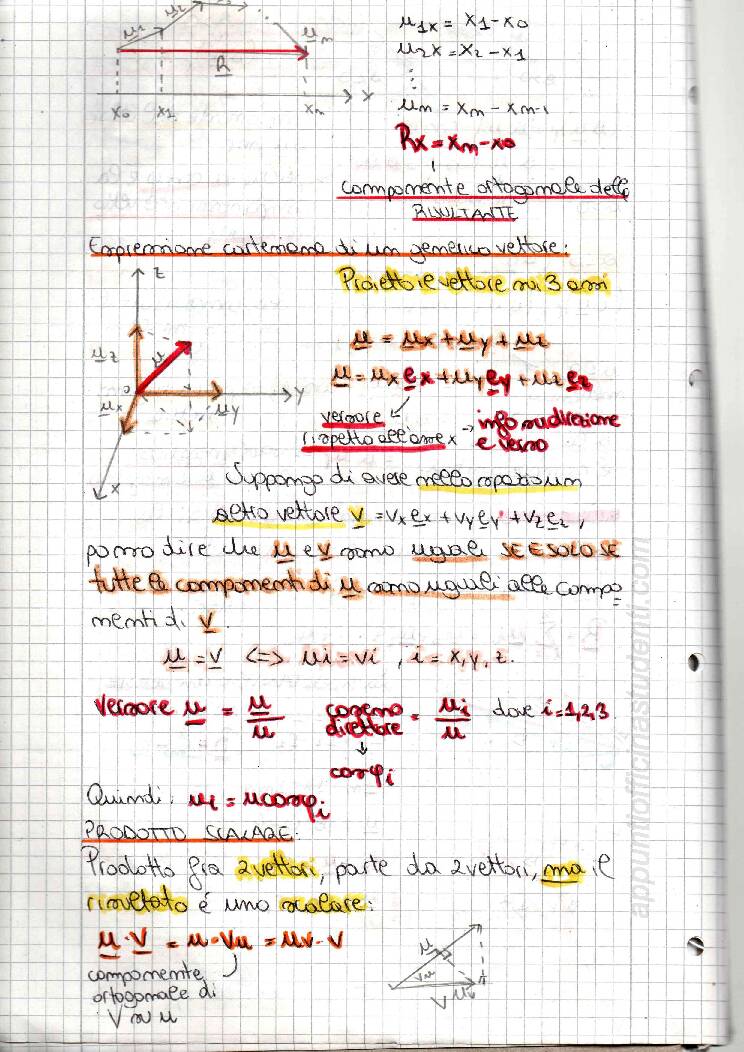 u1 u2 um
R
x0 x1 xm x
u1x = x1-x0
u2x = x2-x1
⋮
um = xm - xm-1
Rx = xm-x0
componente ortogonale della
RISULTANTE
Espressione cartesiana di un generico vettore:
Proietto il vettore sui 3 assi
z
uz u
o
ux uy y
x
u = ux + uy + uz
u = ux ex + uy ey + uz ez
versore
rispetto all'asse x → info su direzione
e verso
Suppongo di avere nello spazio un
altro vettore v = vx ex + vy ey + vz ez,
posso dire che u e v sono uguali SE E SOLO SE
tutte le componenti di u sono uguali alle compo
nenti di v.
u = v <=> ui = vi , i = x, y, z.
versore u = u/u coseno direttore = ui/u dove i = 1,2,3
↓
cosφi
Quindi: ui = u cosφi
PRODOTTO SCALARE:
Prodotto fra 2 vettori, parte da 2 vettori, ma il
risultato é uno scalare:
u · v = u · vu = uv · v
componente
ortogonale di
V su u
u
vu
V uv
appuntiofficinastudenti.com